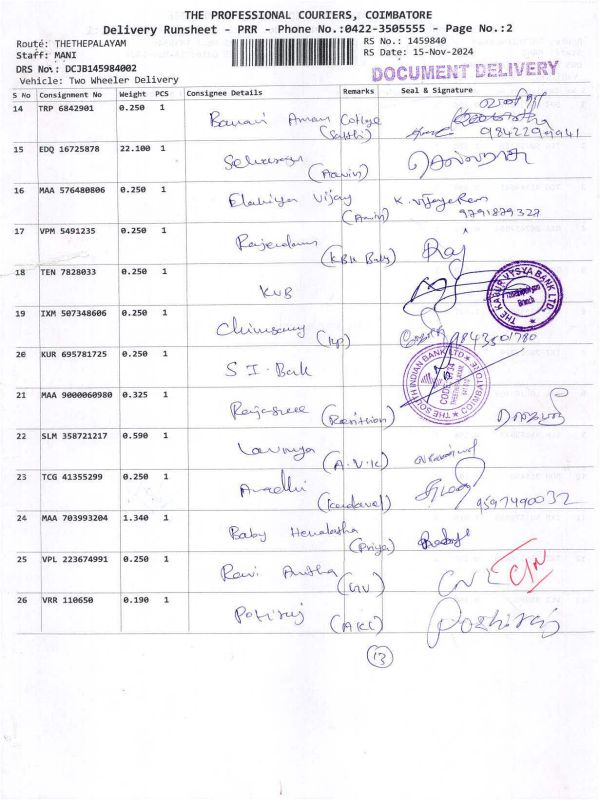 THE PROFESSIONAL COURIERS, COIMBATORE
Delivery Runsheet - PRR - Phone No.:0422-3505555 - Page No.:2
Route: THETHEPALAYAM
RS No.: 1459840
Staff: MANI
RS Date: 15-Nov-2024
DRS No.: DCJB145984002
DOCUMENT DELIVERY
Vehicle: Two Wheeler Delivery
S No Consignment No Weight PCS Consignee Details Remarks Seal & Signature
14 TRP 6842901 0.250 1 Bannari Amman College
(Sakthi) 9842299941
15 EDQ 16725878 22.100 1 Selvaraju
(Aavin)
16 MAA 576480806 0.250 1 Vijay K. Vijaya Ram
9791879327
17 VPM 5491235 0.250 1 (KBH Baby) Raj
18 TEN 7828033 0.250 1 KVB
THE KARUR VYSYA BANK LTD.
Branch
19 IXM 507348606 0.250 1 Chinnsamy (kp) 9843501780
20 KUR 695781725 0.250 1 S I. Bank
THE SOUTH INDIAN BANK LTD COIMBATORE
21 MAA 9000060980 0.325 1 Rajasree
22 SLM 358721217 0.590 1 Lavanya (A.V.K)
23 TCG 41355299 0.250 1 (Kadavel) 9597490032
24 MAA 703993204 1.340 1 Baby Hemalatha
(Priya)
25 VPL 223674991 0.250 1 Ravi (GV) C/N
26 VRR 110650 0.190 1 (AKC) Pothiraj
13